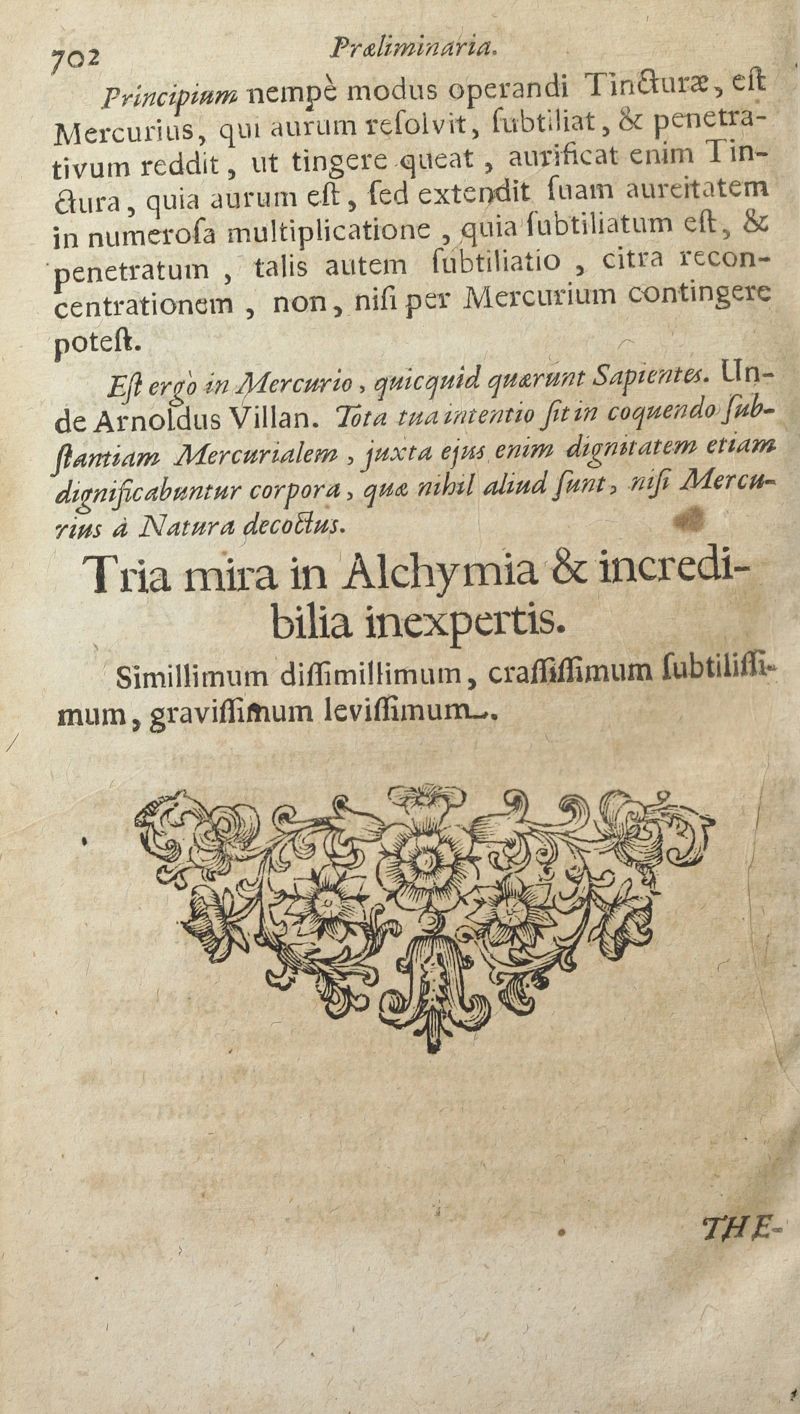 702
Præliminaria.
Principium nempè modus operandi Tincturæ, eſt
Mercurius, qui aurum reſolvit, ſubtiliat, & penetra-
tivum reddit, ut tingere queat, aurificat enim Tin-
ctura, quia aurum eſt, ſed extendit ſuam aureitatem
in numeroſa multiplicatione, quia ſubtiliatum eſt, &
penetratum, talis autem ſubtiliatio, citra recon-
centrationem, non, niſi per Mercurium contingere
poteſt.
Eſt ergò in Mercurio, quicquid quærunt Sapientes. Un-
de Arnoldus Villan. Tota tua intentio ſit in coquendo ſub-
ſtantiam Mercurialem, juxta ejus enim dignitatem etiam
dignificabuntur corpora, quæ nihil aliud ſunt, niſi Mercu-
rius à Natura decoctus.
Tria mira in Alchymia & incredi-
bilia inexpertis.
Simillimum diſſimillimum, craſſiſſimum ſubtiliſſi-
mum, graviſſimum leviſſimum.
THE-